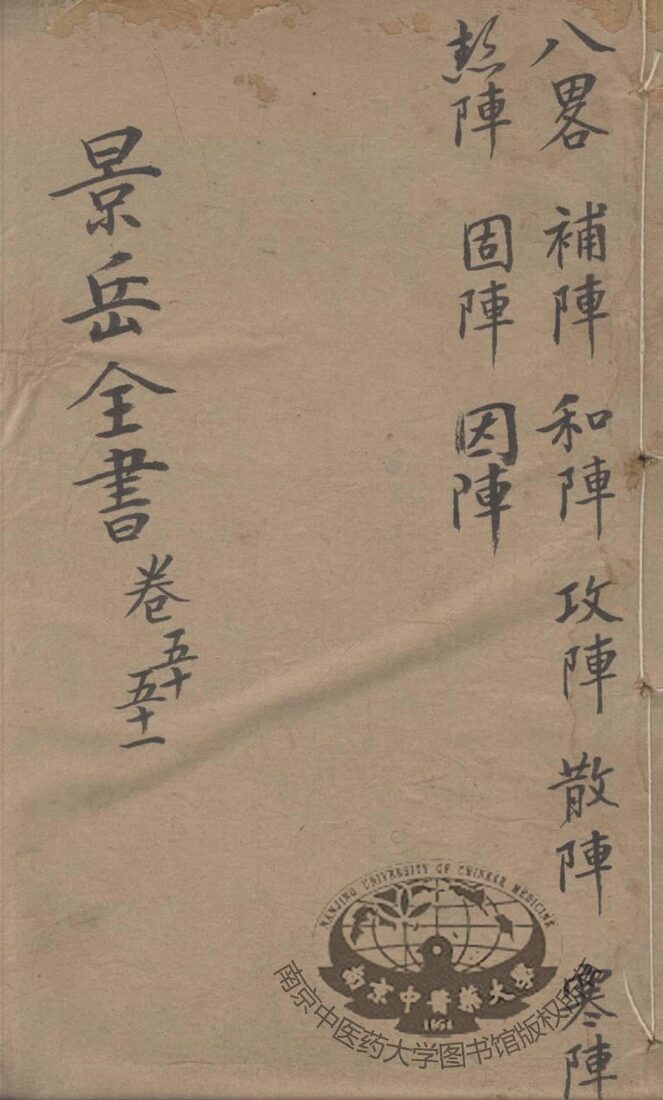 八畧 補陣 和陣 攻陣 散陣 寒陣
熱陣 固陣 因陣
景岳全書 卷五十 五十一
NANJING UNIVERSITY OF CHINESE MEDICINE
南京中醫藥大學
1954
南京中医药大学图书馆版权所有